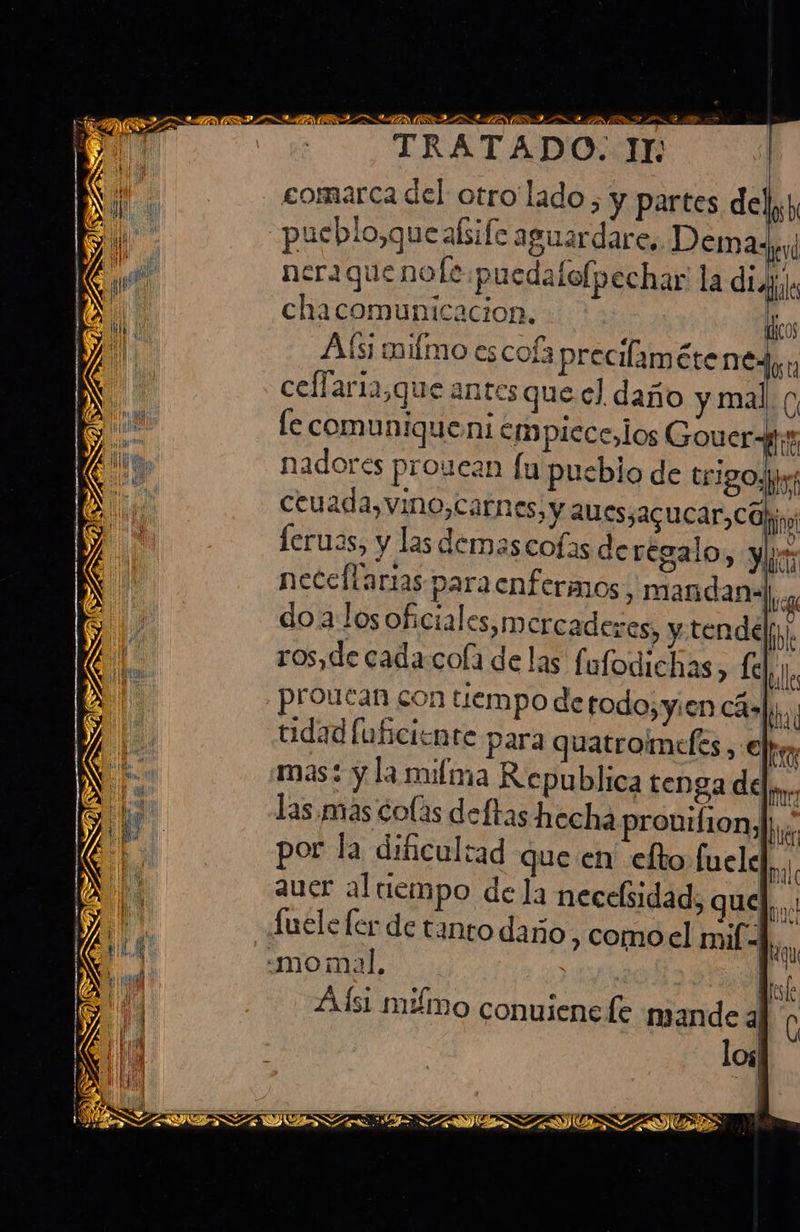 TRATADO. II.
comarca del otro lado, y partes del
pueblo, que aſsiſe aguardare. Dema-
nera que noſe pueda ſoſpechar la di-
cha comunicacion.
Aſsi miſmo es coſa preciſaméte ne-
ceſſaria, que antes que el daño y mal
ſe comunique ni empiece, los Gouer-
nadores prouean ſu pueblo de trigo,
ceuada, vino, carnes, y aues, açucar, cõ
ſeruas, y las demas coſas de regalo, y
neceſſarias para enfermos, mandan-
do a los oficiales, mercaderes, y tende
ros, de cada coſa de las ſuſodichas, ſe
prouean con tiempo de todo, y en cã-
tidad ſuficiente para quatro meſes, e
mas: y la miſma Republica tenga de
las mas coſas deſtas hecha prouiſion,
por la dificultad que en eſto ſuele
auer al tiempo de la neceſsidad, que
ſuele ſer de tanto daño, como el miſ-
mo mal.
Aſsi miſmo conuiene ſe mande a
los